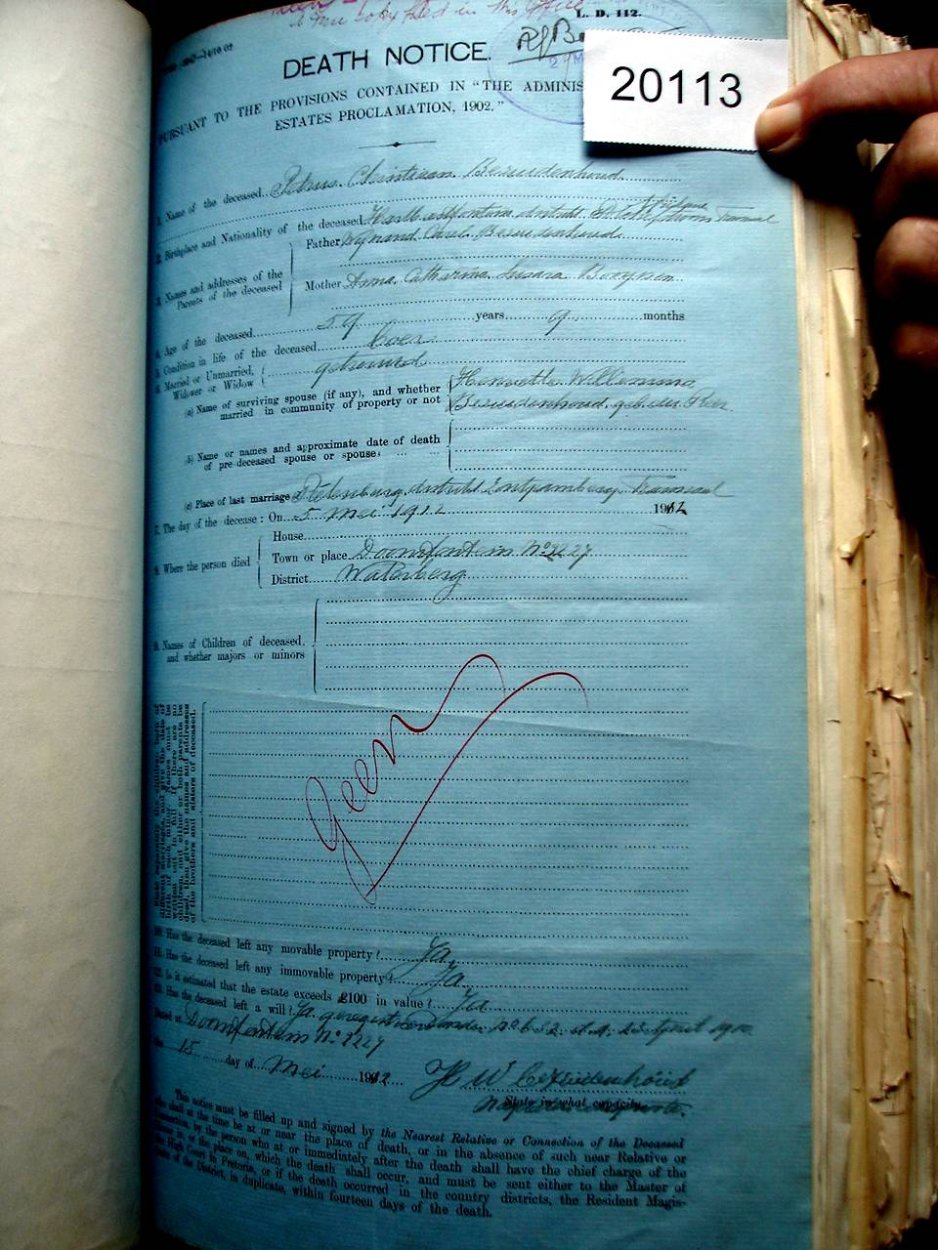 a true copy filed in this Office
L. D. 112.
DEATH NOTICE.
20113
PURSUANT TO THE PROVISIONS CONTAINED IN "THE ADMINIS
ESTATES PROCLAMATION, 1902."
1. Name of the deceased Petrus Christiaan Bezuidenhoud
2. Birthplace and Nationality of the deceased Hartbeestfontein district
3. Names and addresses of the Parents of the deceased
Father Wynand Bezuidenhoud
Mother Anna Catherina Susara
4. Age of the deceased 59 years 9 months
5. Condition in life of the deceased boer
6. Married or Unmarried, Widower or Widow getrouwd
(a) Name of surviving spouse (if any), and whether married in community of property or not
Henrietta Willemina
Bezuidenhoud geb.
(b) Name or names and approximate date of death of pre-deceased spouse or spouses
(c) Place of last marriage district Zoutpansberg Transvaal
7. The day of the decease: On 5 Mei 1912 1912
8. Where the person died
House
Town or place Doornfontein No 2227
District Waterberg
9. Names of Children of deceased, and whether majors or minors
Geen
10. Has the deceased left any movable property? Ja
11. Has the deceased left any immovable property? Ja
12. Is it estimated that the estate exceeds £100 in value? Ja
13. Has the deceased left a will? Ja
Dated at Doornfontein No 2227
the 15 day of Mei 1912
H W Bezuidenhoud
State in what capacity.
This notice must be filled up and signed by the Nearest Relative or Connection of the Deceased
who shall at the time be at or near the place of death, or in the absence of such near Relative or
Connection, by the person who at or immediately after the death shall have the chief charge of the
house in, or the place on, which the death shall occur, and must be sent either to the Master of
the High Court in Pretoria, or if the death occurred in the country districts, the Resident Magis-
trate of the District, in duplicate, within fourteen days of the death.